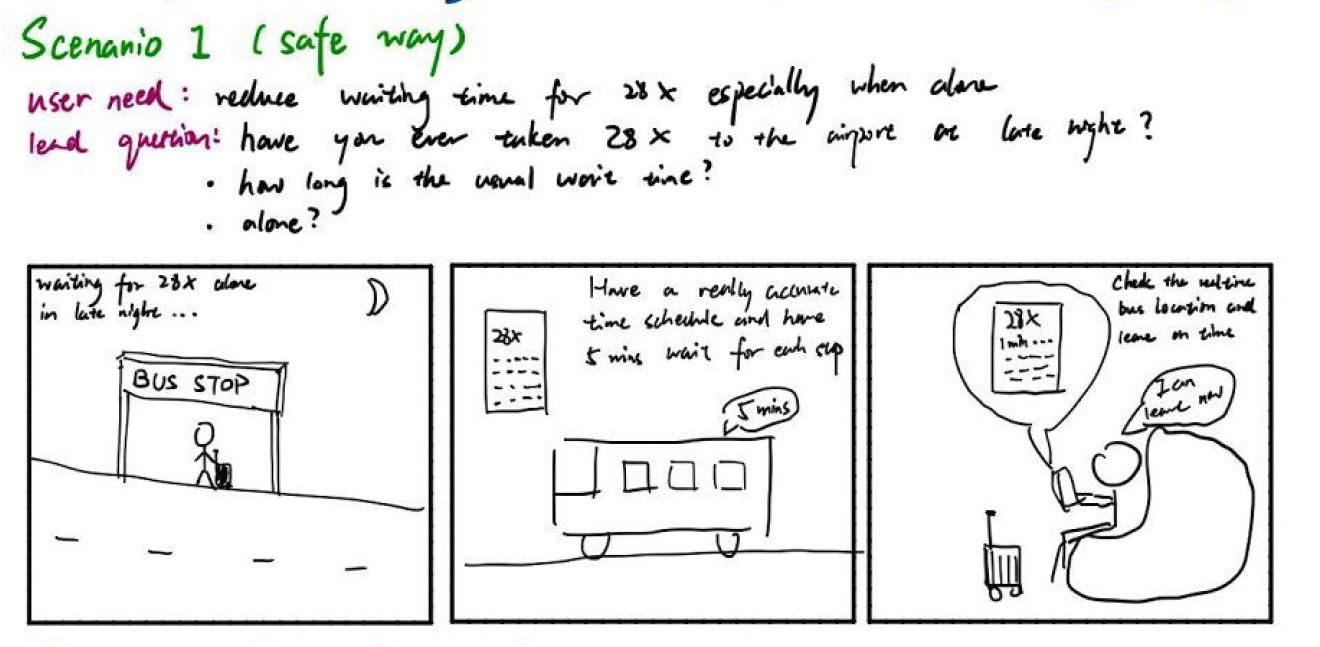 Scenanio 1 (safe way)
user need: reduce waiting time for 28X especially when alone
lead question: have you ever taken 28X to the airport at late night?
• how long is the usual wait time?
• alone?
waiting for 28X alone
in late night ...
BUS STOP
Have a really accurate
time schedule and have
5 mins wait for each stop
28X
5 mins
Check the real-time
bus location and
leave on time
28X
1 min ...
I can
leave now